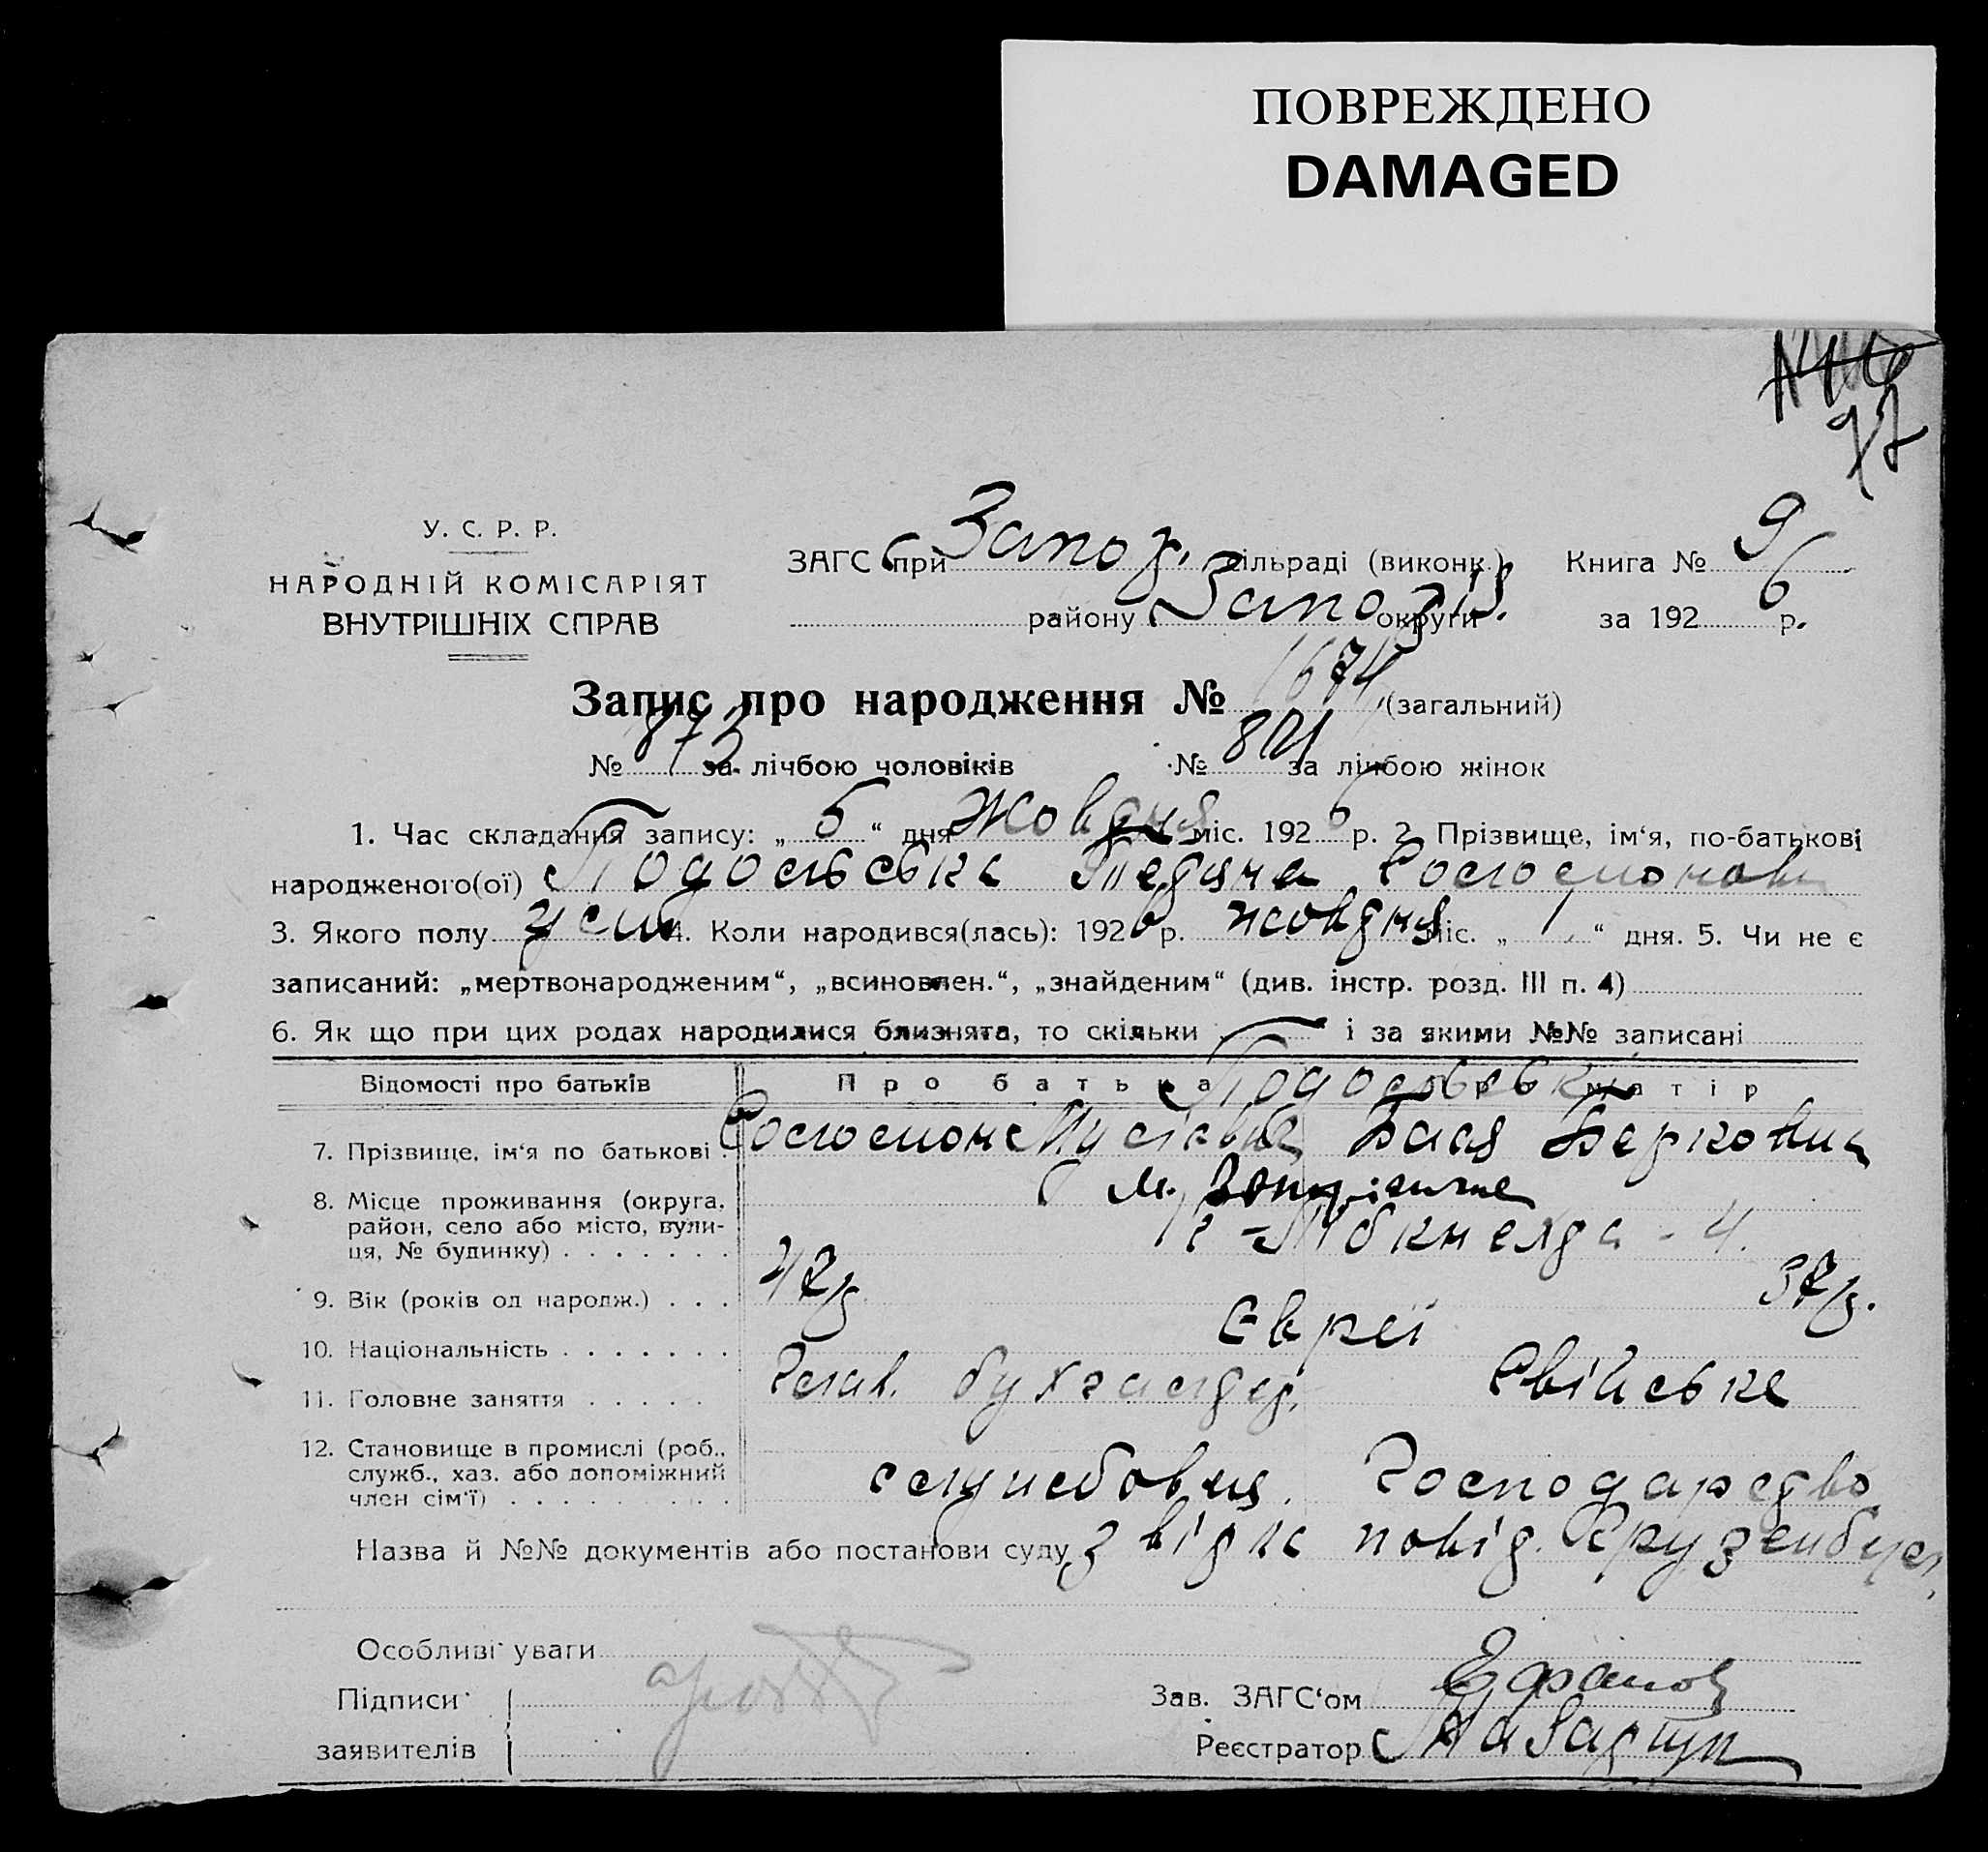 ПОВРЕЖДЕНО
DAMAGED
77
У. С. Р. Р.
НАРОДНІЙ КОМІСАРІЯТ
ВНУТРІШНІХ СПРАВ
ЗАГС при Запор. сільраді (виконк.) Книга № 9
району Запоріз. округи за 1926 р.
Запис про народження № 1674 (загальний)
№ 873 за лічбою чоловіків № 801 за лічбою жінок
1. Час складання запису: „ 5 “ дня Жовтня міс. 1926 р. 2. Прізвище, ім‘я, по-батькові
народженого(ої) Подольська Тетяна Соломонов
3. Якого полу жін 4. Коли народився(лась): 1926 р. жовтня міс. „ 1 “ дня. 5. Чи не є
записаний: „мертвонародженим“, „всиновлен.“, „знайденим“ (див. інстр. розд. III п. 4)
6. Як що при цих родах народилися близнята, то скільки — і за якими №№ записані
Відомості про батьків Про батька Про матір
Подольськи
7. Прізвище, ім‘я по батькові Соломон Мусієвич Бася Берковна
8. Місце проживання (округа, м. Запоріжжя
район, село або місто, вули-
ця, № будинку) Лібкнехта - 4.
9. Вік (років од народж.) 47 р. 37 р.
10. Національність Євреї
11. Головне заняття Голов. бухгалтер. Свійське
12. Становище в промислі (роб.,
служб., хаз. або допоміжний службовця. Господарство
член сім‘ї)
Назва й №№ документів або постанови суду з
Особливі уваги
Підписи Зав. ЗАГС‘ом
заявителів Реєстратор